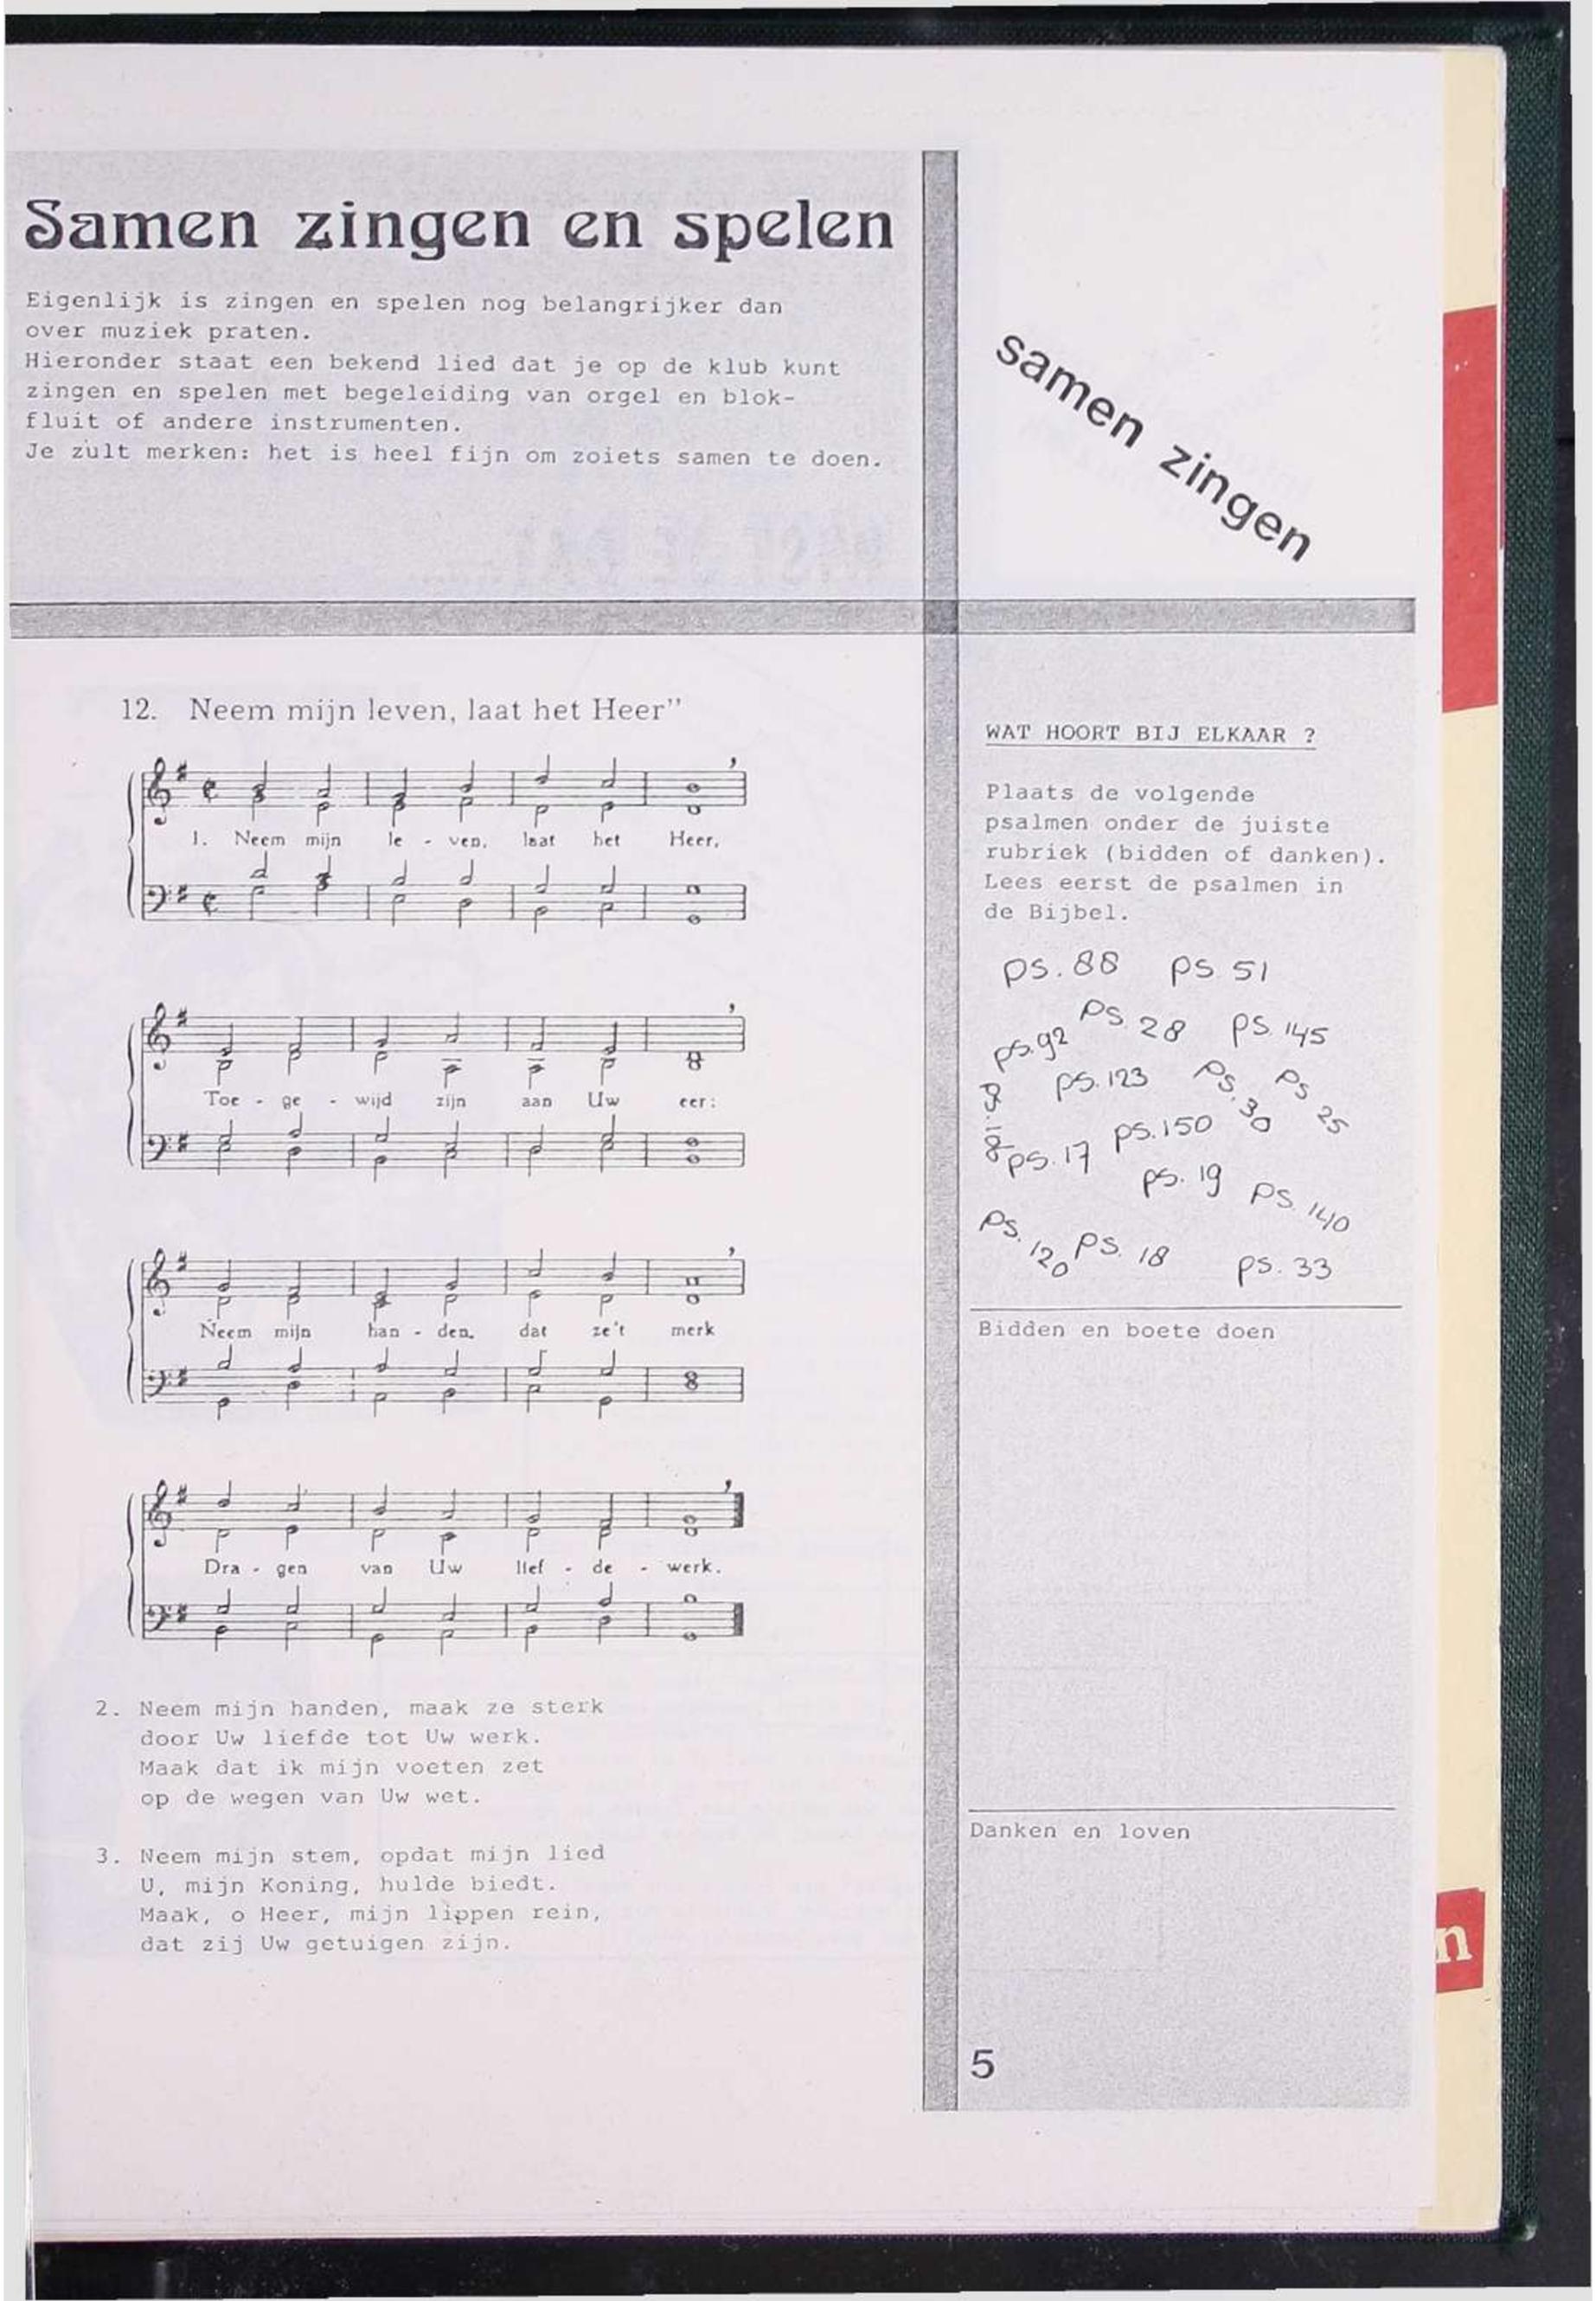 Samen zingen en spelen
Eigenlijk is zingen en spelen nog belangrijker dan
over muziek praten.
Hieronder staat een bekend lied dat je op de klub kunt
zingen en spelen met begeleiding van orgel en blok-
fluit of andere instrumenten.
Je zult merken: het is heel fijn om zoiets samen te doen.
samen zingen
12. Neem mijn leven, laat het Heer”
1. Neem mijn le - ven, laat het Heer,
Toe - ge - wijd zijn aan Uw eer:
Neem mijn han - den, dat ze't merk
Dra - gen van Uw lief - de - werk.
2. Neem mijn handen, maak ze sterk
door Uw liefde tot Uw werk.
Maak dat ik mijn voeten zet
op de wegen van Uw wet.
3. Neem mijn stem, opdat mijn lied
U, mijn Koning, hulde biedt.
Maak, o Heer, mijn lippen rein,
dat zij Uw getuigen zijn.
WAT HOORT BIJ ELKAAR ?
Plaats de volgende
psalmen onder de juiste
rubriek (bidden of danken).
Lees eerst de psalmen in
de Bijbel.
ps. 88 ps. 51
ps. 92 ps. 28 ps. 145
ps. 123 ps. 30 ps 25
ps. 17 ps. 150
ps. 19 ps. 140
ps. 120 ps. 18 ps. 33
Bidden en boete doen
Danken en loven
5
n